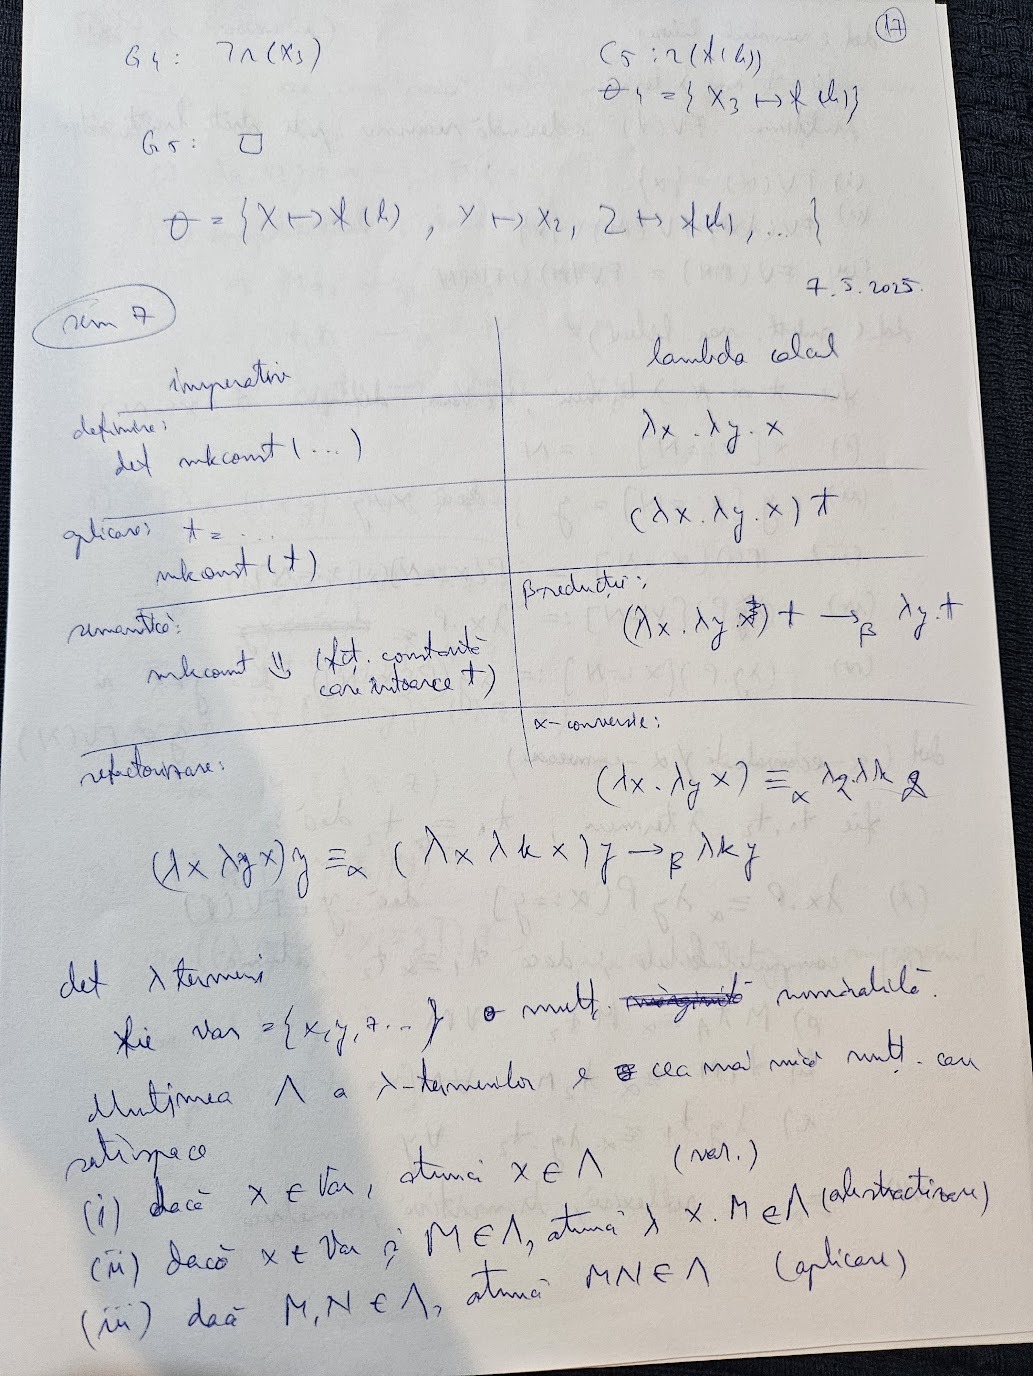 17
G4 : ¬r(x3)
C5 : r(f(h))
θ4 = { x3 ↦ f(h)}
G5 : □
θ = {X ↦ f(h) , Y ↦ X2, Z ↦ f(h), ... }
7.5.2025.
sem 7
imperativ
lambda calcul
definire:
def mkconst(...)
λx . λy . x
aplicare: t = ...
mkconst(t)
(λx . λy . x) t
semantică:
mkconst ⇓ (fct. constantă
care întoarce t)
β-reducție:
(λx . λy . x) t →β λy . t
refactorizare:
α-conversie:
(λx . λy x) ≡α λz λk z
(λx λy x) y ≡α (λx λk x) y →β λk y
def λ termeni
fie Var = {x, y, z ... } o mulț. numărabilă.
Mulțimea Λ a λ-termenilor e cea mai mică mulț. care
satisface
(i) dacă x ∈ Var, atunci x ∈ Λ (var.)
(ii) dacă x ∈ Var și M ∈ Λ, atunci λ x. M ∈ Λ (abstractizare)
(iii) dacă M, N ∈ Λ, atunci MN ∈ Λ (aplicare)